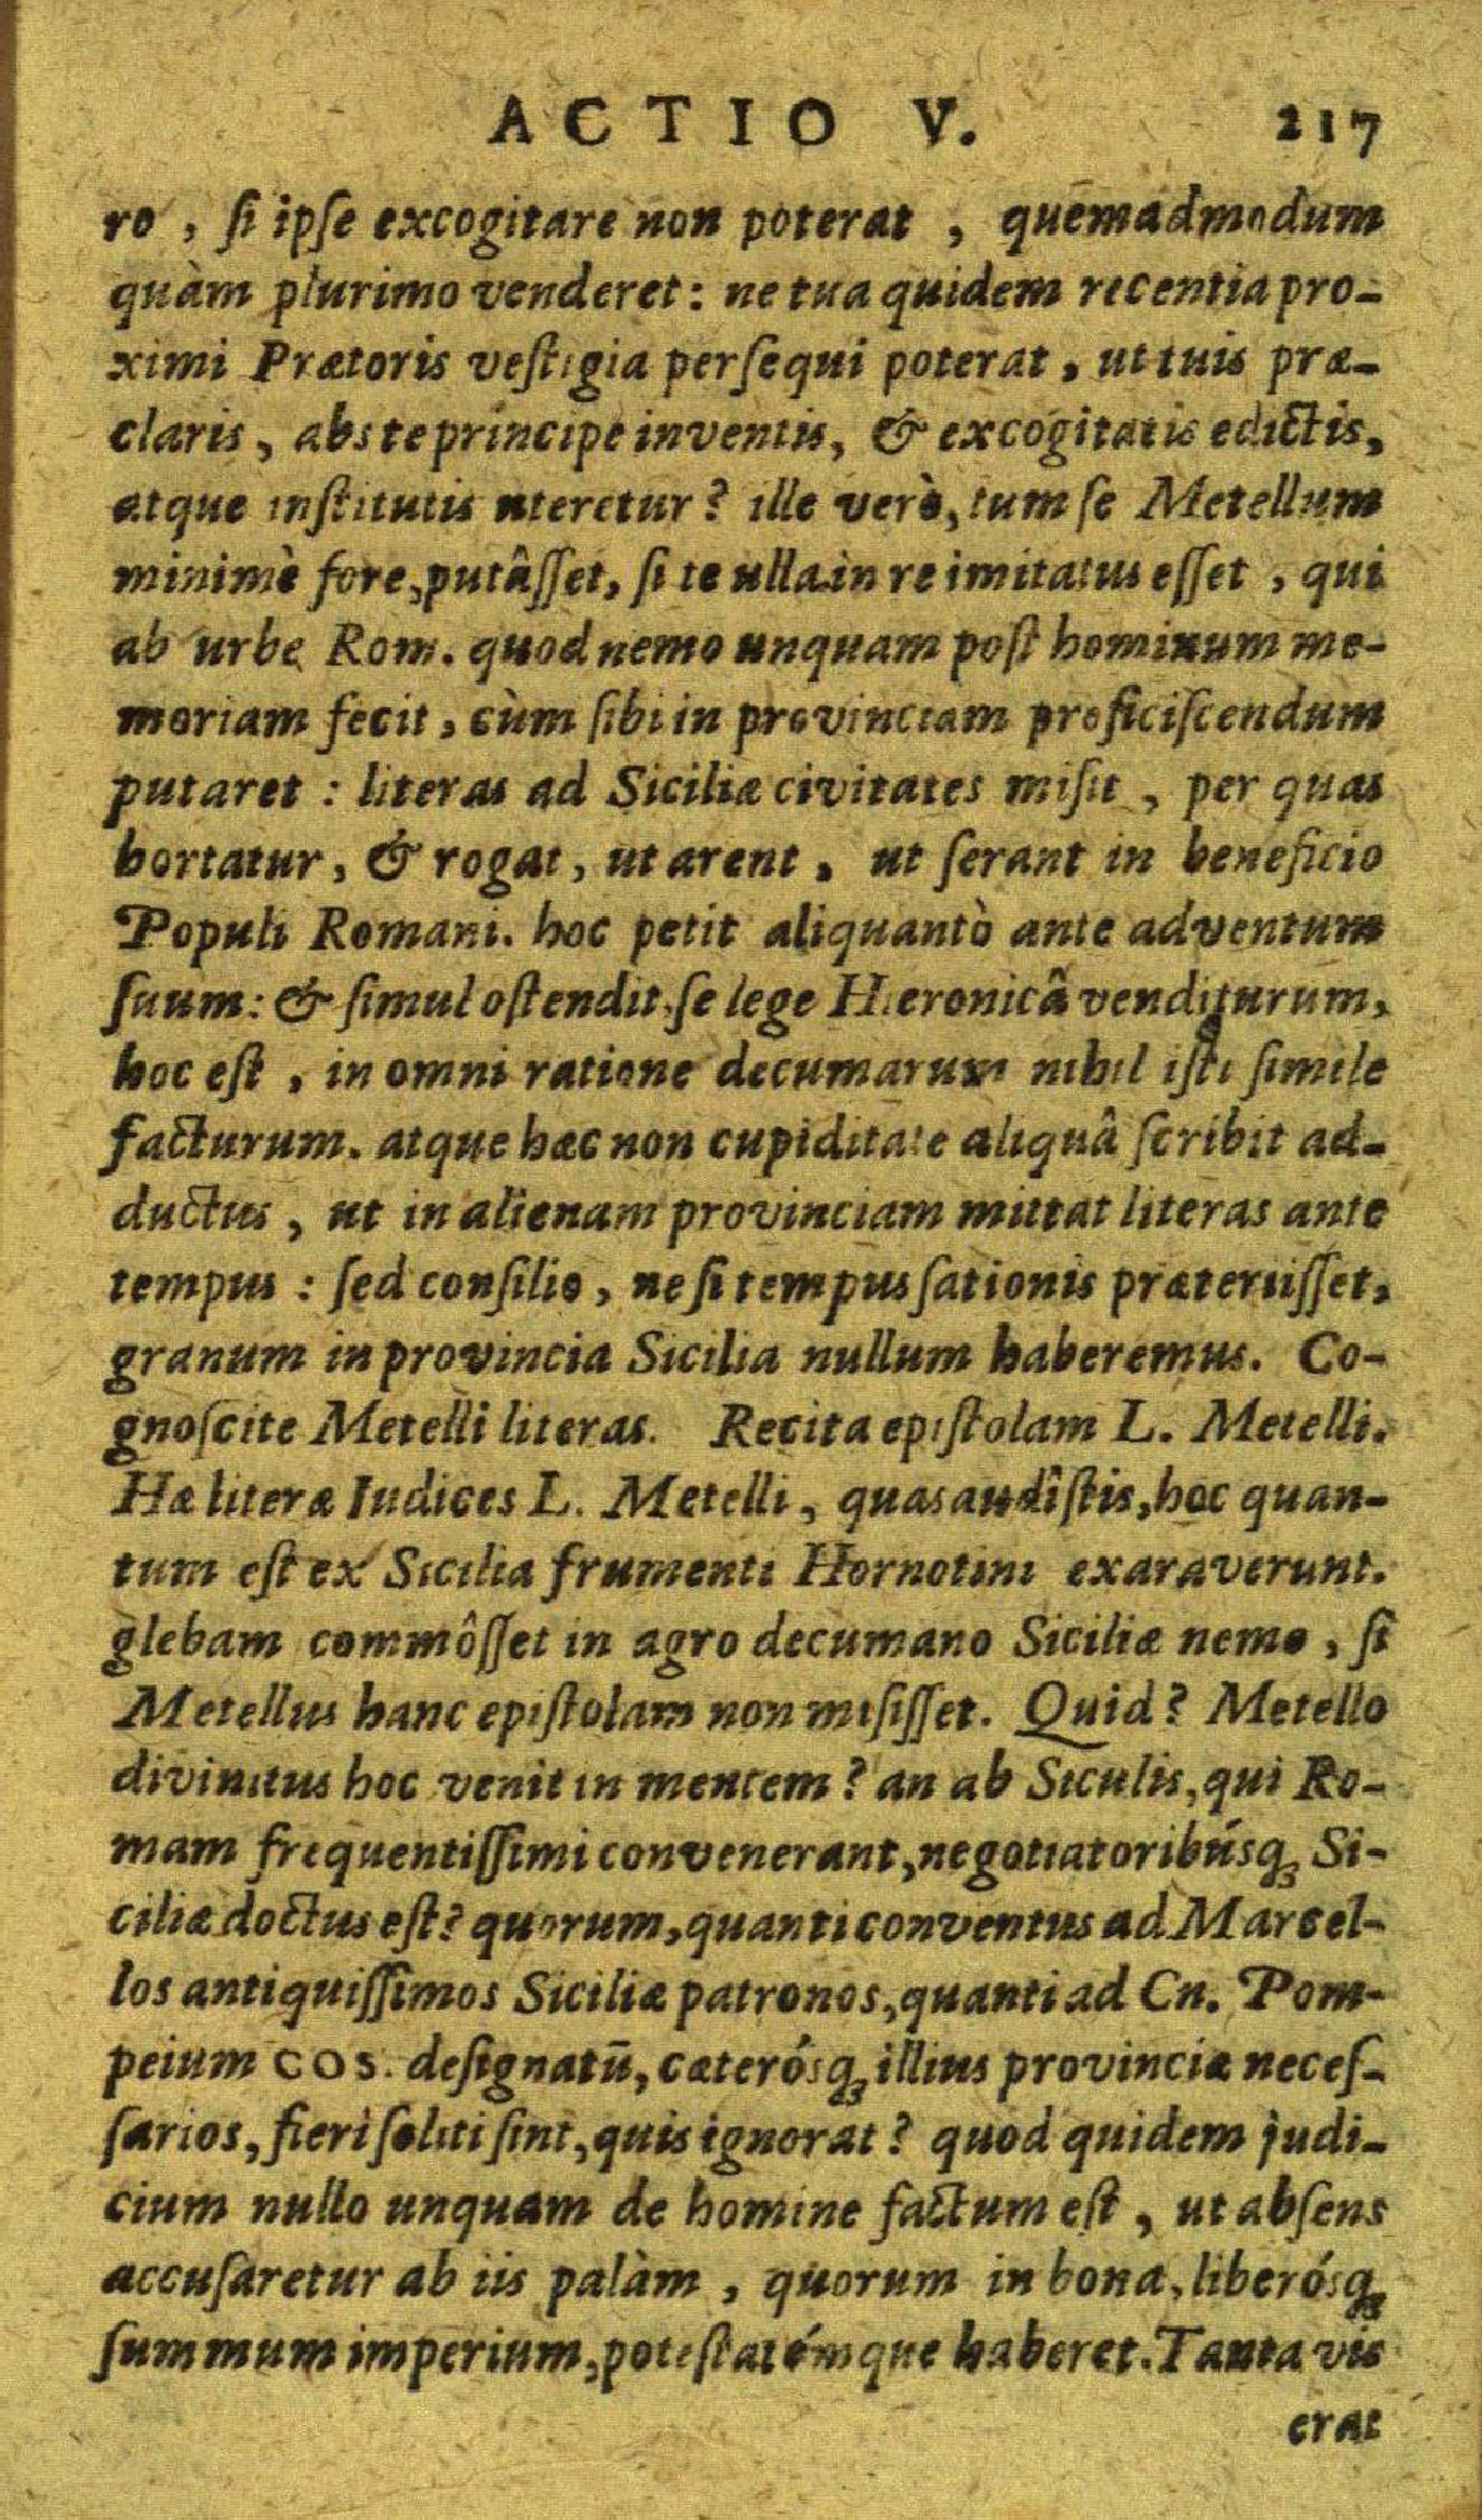 ACTIO V. 217
ro, ſi ipſe excogitare non poterat, quemadmodum
quàm plurimo venderet: ne tua quidem recentia pro-
ximi Prætoris veſtigia perſequi poterat, ut tuis præ-
claris, abs te principe inventis, & excogitatis edictis,
atque inſtitutis uteretur? ille verò, tum ſe Metellum
minimè fore, putâſſet, ſi te ulla in re imitatus eſſet, qui
ab urbe Rom. quod nemo unquam poſt hominum me-
moriam fecit, cùm ſibi in provinciam proficiſcendum
putaret: literas ad Siciliæ civitates miſit, per quas
hortatur, & rogat, ut arent, ut ſerant in beneficio
Populi Romani. hoc petit aliquantò ante adventum
ſuum: & ſimul oſtendit, ſe lege Hieronicâ venditurum,
hoc eſt, in omni ratione decumarum nihil iſti ſimile
facturum. atque hæc non cupiditate aliquâ ſcribit ad-
ductus, ut in alienam provinciam mittat literas ante
tempus: ſed conſilio, ne ſi tempus ſationis præteriiſſet,
granum in provincia Sicilia nullum haberemus. Co-
gnoſcite Metelli literas. Recita epiſtolam L. Metelli.
Hæ literæ Iudices L. Metelli, quas audîſtis, hoc quan-
tum eſt ex Sicilia frumenti Hornotini exaraverunt.
glebam commôſſet in agro decumano Siciliæ nemo, ſi
Metellus hanc epiſtolam non miſiſſet. Quid? Metello
divinitus hoc venit in mentem? an ab Siculis, qui Ro-
mam frequentiſſimi convenerant, negotiatoribúsq; Si-
ciliæ doctus eſt? quorum, quanti conventus ad Marcel-
los antiquiſſimos Siciliæ patronos, quanti ad Cn. Pom-
peium COS. deſignatū, cæterósq; illius provinciæ neceſ-
ſarios, fieri ſoliti ſint, quis ignorat? quod quidem judi-
cium nullo unquam de homine factum eſt, ut abſens
accuſaretur ab iis palàm, quorum in bona, liberósq;
ſummum imperium, poteſtatémque haberet. Tanta vis
erat